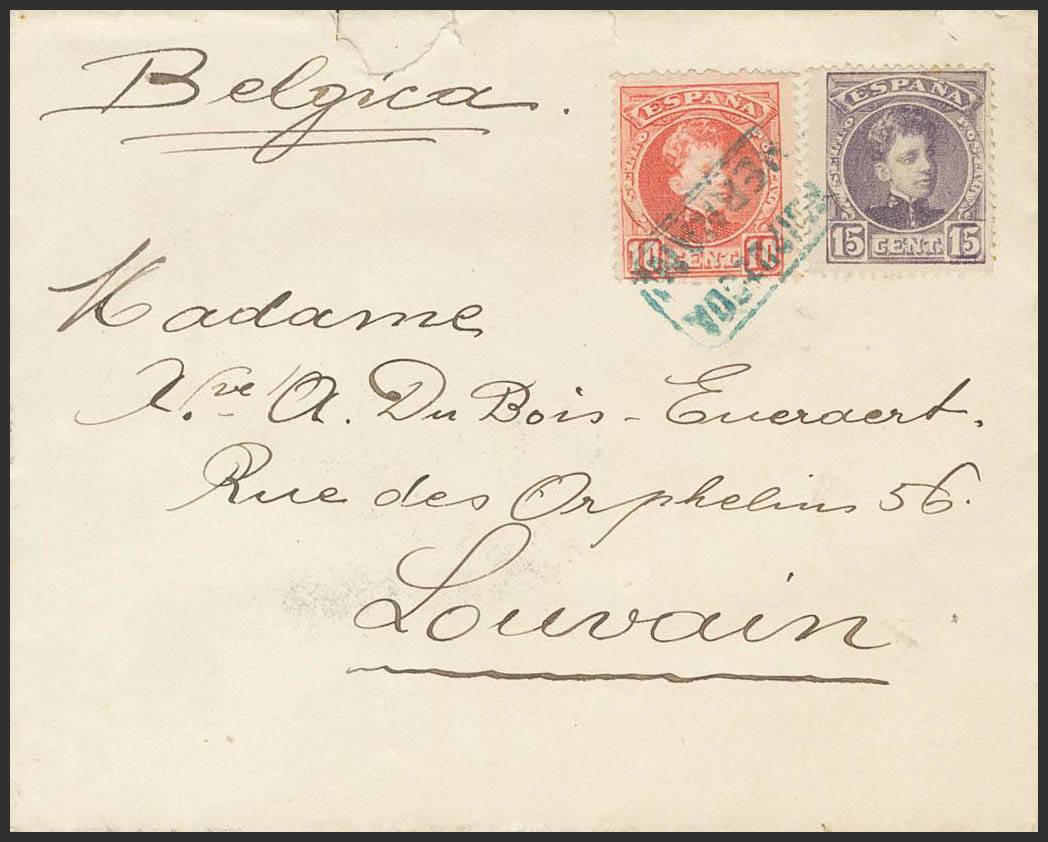 Belgica.
ESPAÑA
SELLO POSTAL
10 CENT. 10
ESPAÑA
SELLO POSTAL
15 CENT. 15
Madame
Vve A. Du Bois-Eueraert.
Rue des Orphelins 56.
Louvain